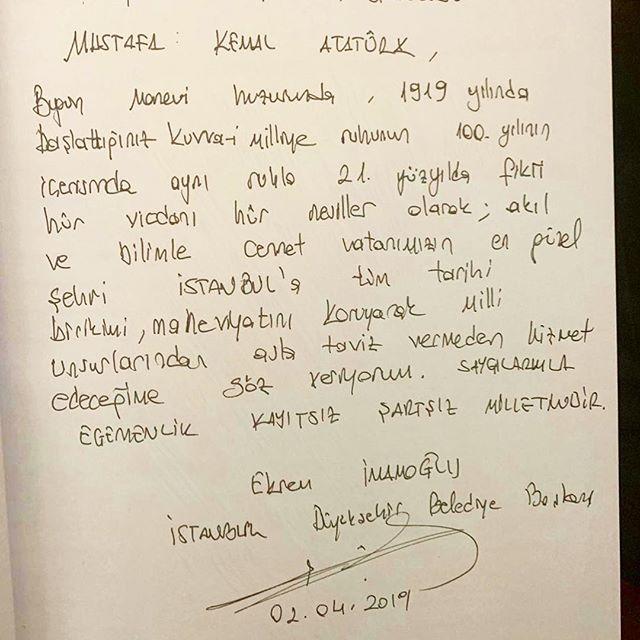 MUSTAFA KEMAL ATATÜRK,
Bugün Manevi huzurunuzda, 1919 yılında
Başlattığınız Kuvva-i Milliye ruhunun 100. yılının
içerisinde aynı ruhla 21. yüzyılda fikri
hür vicdanı hür nesiller olarak; akıl
ve bilimle cennet vatanımızın en güzel
şehri İSTANBUL'a tüm tarihi
birikimi, maneviyatını koruyarak milli
unsurlarından asla taviz vermeden hizmet
edeceğime söz veriyorum. SAYGILARIMLA
EGEMENLİK KAYITSIZ ŞARTSIZ MİLLETİNDİR.
Ekrem İMAMOĞLU
İSTANBUL Büyükşehir Belediye Başkanı
02.04.2019